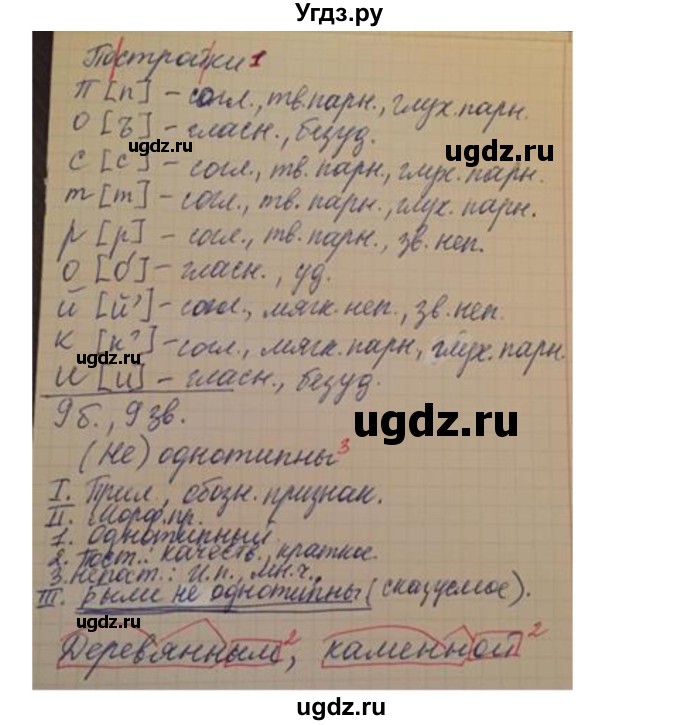 Угдз.ру
Постройки 1
П [п] – согл., тв. парн., глух. парн.
О [ъ] – гласн., безуд.
ugdz.ru
ugdz.ru
с [с] – согл., тв. парн., глух. парн.
т [т] – согл., тв. парн., глух. парн.
р [р] – согл., тв. парн., зв. неп.
о [о́] – гласн., уд.
й [й'] – согл., мягк. неп., зв. неп.
к [к'] – согл., мягк. парн., глух. парн.
ugdz.ru
и [и] – гласн., безуд.
9 б., 9 зв.
ugdz.ru
(Не) однотипны 3
I. Прил., обозн. признак.
II. Морф. пр.
1. Однотипный
2. Пост.: качеств., краткое.
3. непост.: и.п., мн.ч.
III. Были не однотипны (сказуемое).
ugdz.ru
ugdz.ru
Деревянным 2, каменной 2
ugdz.ru